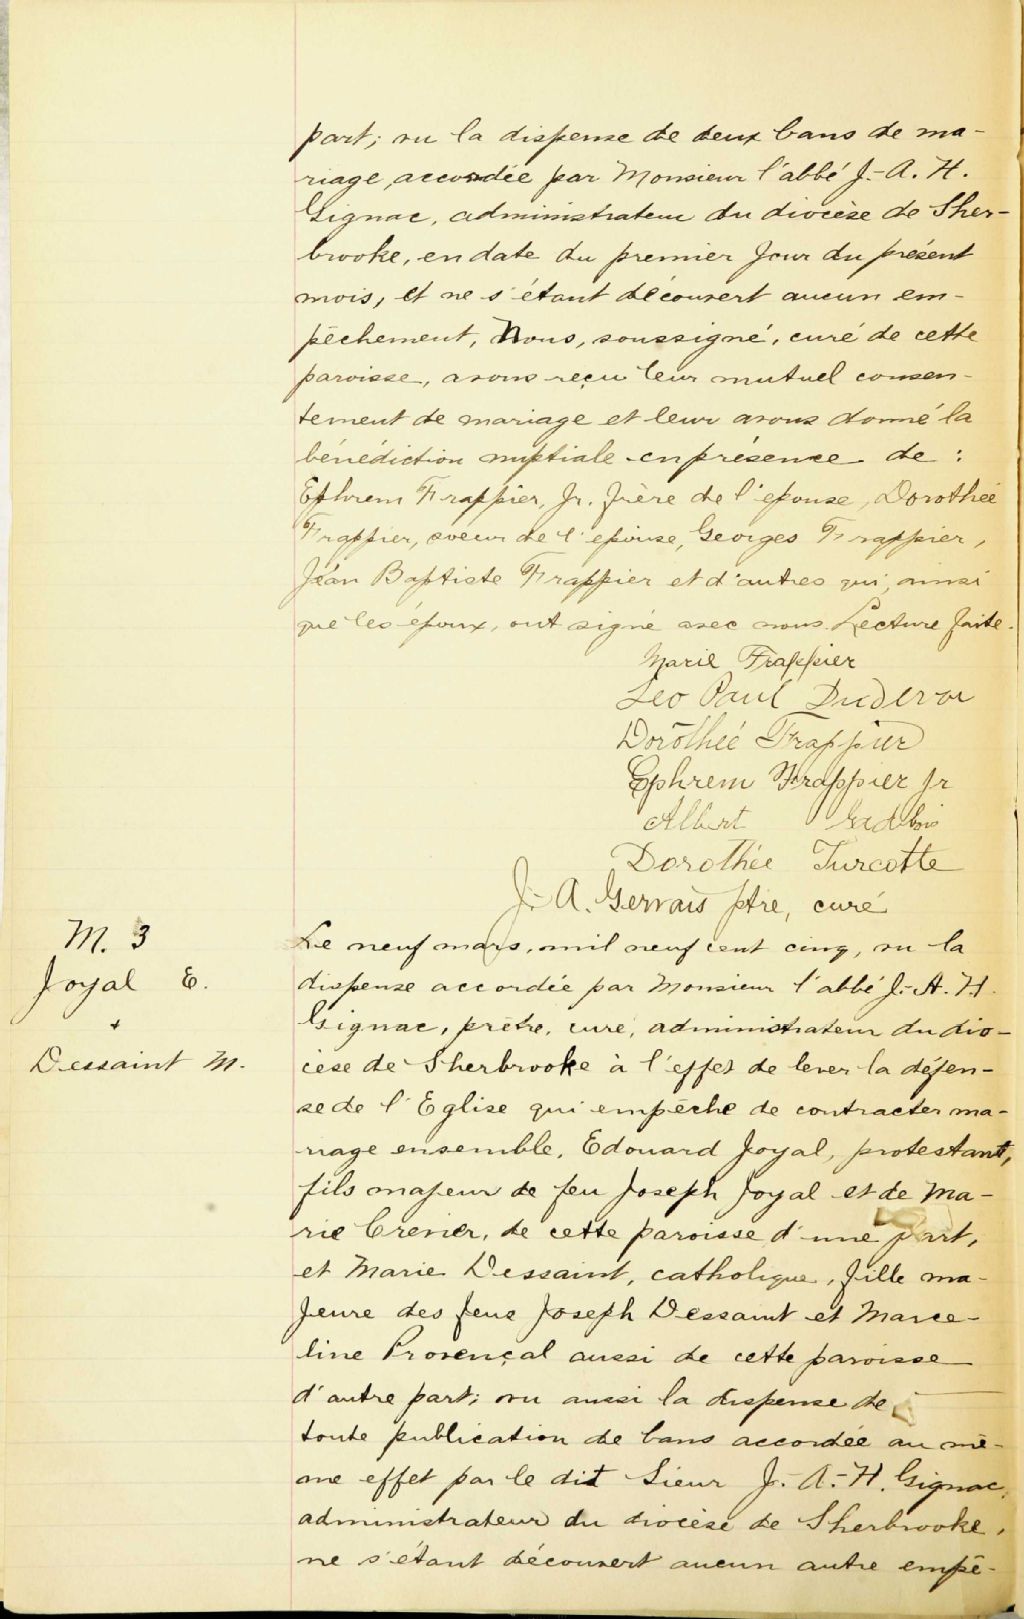 part; vu la dispense de deux bans de ma-
riage, accordée par Monsieur l'abbé J.-A. H.
Gignac, administrateur du diocèse de Sher-
brooke, en date du premier jour du présent
mois, et ne s'étant découvert aucun em-
pêchement, Nous, soussigné, curé de cette
paroisse, avons reçu leur mutuel consen-
tement de mariage et leur avons donné la
bénédiction nuptiale en présence de :
Ephrem Frappier, Jr. frère de l'épouse, Dorothée
Frappier, soeur de l'épouse, Georges Frappier,
Jean Baptiste Frappier et d'autres qui, ainsi
que les époux, ont signé avec nous. Lecture faite.
Marie Frappier
Leo Paul
Dorothée Frappier
Ephrem Frappier Jr
Albert Gadbois
Dorothée Turcotte
J.-A. Gervais ptre, curé
M. 3
Joyal E.
+
Dessaint M.
Le neuf mars, mil neuf cent cinq, vu la
dispense accordée par Monsieur l'abbé J.-A. H.
Gignac, prêtre, curé, administrateur du dio-
cèse de Sherbrooke à l'effet de lever la défen-
se de l'Eglise qui empêche de contracter ma-
riage ensemble, Edouard Joyal, protestant,
fils majeur de feu Joseph Joyal et de Ma-
rie Crevier, de cette paroisse d'une part,
et Marie Dessaint, catholique, fille ma-
jeure des feus Joseph Dessaint et Marce-
line Provençal aussi de cette paroisse
d'autre part; vu aussi la dispense de
toute publication de bans accordée au mê-
me effet par le dit Sieur J.-A.-H. Gignac,
administrateur du diocèse de Sherbrooke,
ne s'étant découvert aucun autre empê-